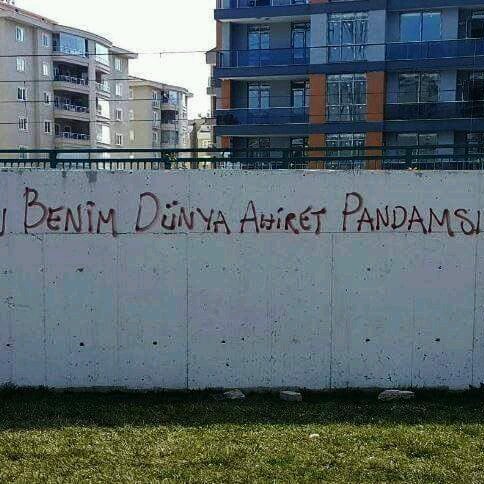 BENİM DÜNYA AHİRET PANDAMSI